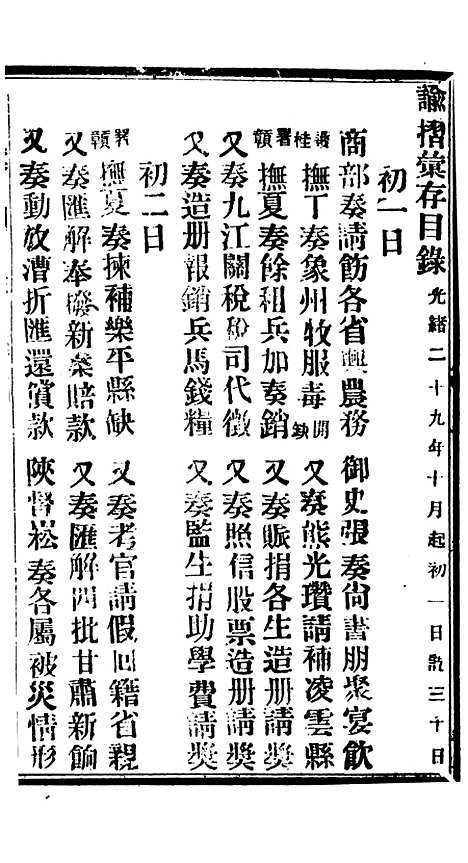 諭摺彙存目錄 光緒二十九年十月起初一日訖三十日
初一日
商部奏請飭各省興農務 御史張奏尙書朋聚宴飮
護桂撫丁奏象州牧服毒開缺 又奏熊光瓚請補凌雲縣
署贛撫夏奏餘租兵加奏銷 又奏賑捐各生造册請奬
又奏九江關稅稅司代徵 又奏照信股票造册請奬
又奏造册報銷兵馬錢糧 又奏監生捐助學費請奬
初二日
署贛撫夏奏揀補樂平縣缺 又奏考官請假回籍省親
又奏匯解奉撥新案賠款 又奏匯解四批甘肅新餉
又奏動放漕折匯還償款 陝督崧奏各屬被災情形